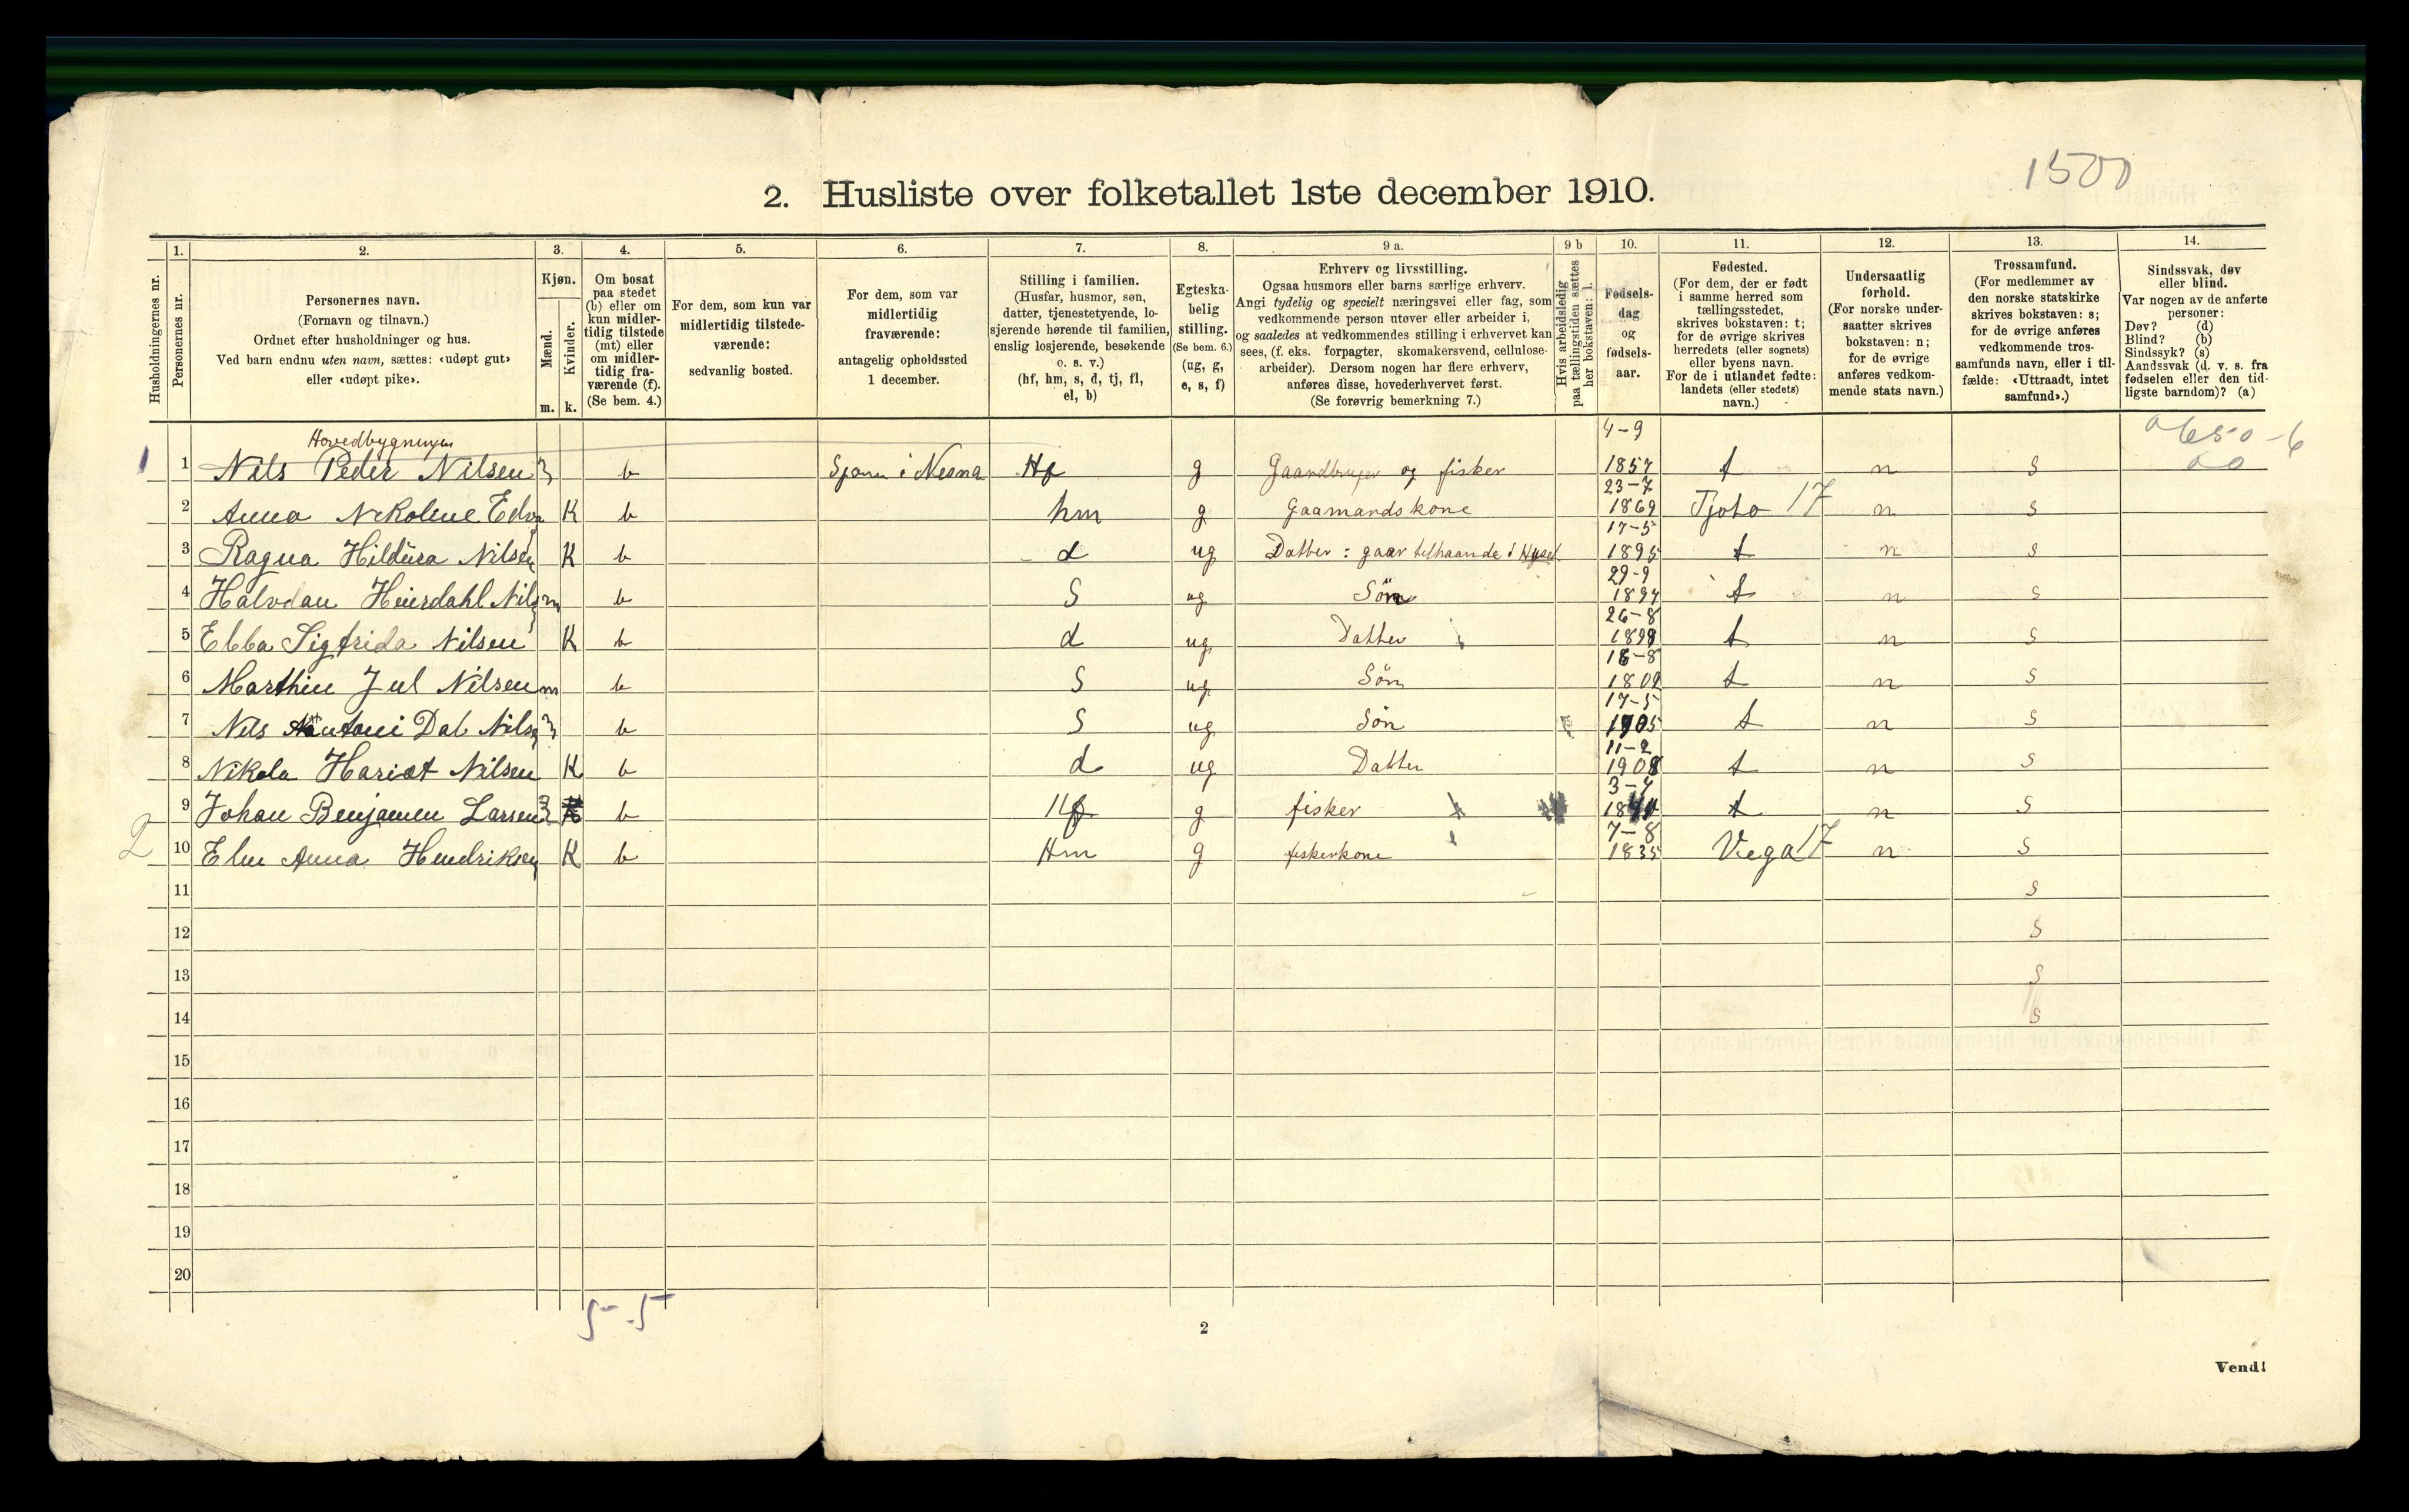 1500
2. Husliste over folketallet 1ste december 1910.
Husholdningernes nr.
1. Personernes nr.
2. Personernes navn.
(Fornavn og tilnavn.)
Ordnet efter husholdninger og hus.
Ved barn endnu uten navn, sættes: «udøpt gut»
eller «udøpt pike».
3. Kjøn.
Mænd. m.
Kvinder. k.
4. Om bosat
paa stedet
(b) eller om
kun midler-
tidig tilstede
(mt) eller
om midler-
tidig fra-
værende (f).
(Se bem. 4.)
5. For dem, som kun var
midlertidig tilstede-
værende:
sedvanlig bosted.
6. For dem, som var
midlertidig
fraværende:
antagelig opholdssted
1 december.
7. Stilling i familien.
(Husfar, husmor, søn,
datter, tjenestetyende, lo-
sjerende hørende til familien,
enslig losjerende, besøkende
o. s. v.)
(hf, hm, s, d, tj, fl,
el, b)
8. Egteska-
belig
stilling.
(Se bem. 6.)
(ug, g,
e, s, f)
9 a. Erhverv og livsstilling.
Ogsaa husmors eller barns særlige erhverv.
Angi tydelig og specielt næringsvei eller fag, som
vedkommende person utøver eller arbeider i,
og saaledes at vedkommendes stilling i erhvervet kan
sees, (f. eks. forpagter, skomakersvend, cellulose-
arbeider). Dersom nogen har flere erhverv,
anføres disse, hovederhvervet først.
(Se forøvrig bemerkning 7.)
9 b Hvis arbeidsledig
paa tællingstiden sættes
her bokstaven: l.
10. Fødsels-
dag
og
fødsels-
aar.
11. Fødested.
(For dem, der er født
i samme herred som
tællingsstedet,
skrives bokstaven: t;
for de øvrige skrives
herredets (eller sognets)
eller byens navn.
For de i utlandet fødte:
landets (eller stedets)
navn.)
12. Undersaatlig
forhold.
(For norske under-
saatter skrives
bokstaven: n;
for de øvrige
anføres vedkom-
mende stats navn.)
13. Trossamfund.
(For medlemmer av
den norske statskirke
skrives bokstaven: s;
for de øvrige anføres
vedkommende tros-
samfunds navn, eller i til-
fælde: «Uttraadt, intet
samfund».)
14. Sindssvak, døv
eller blind.
Var nogen av de anførte
personer:
Døv? (d)
Blind? (b)
Sindssyk? (s)
Aandssvak (d. v. s. fra
fødselen eller den tid-
ligste barndom)? (a)
Hovedbygningen
1 1 Nils Peder Nilsen m b i Nesna Hf g Gaardbruger og fisker 4-9 1857 t n s
2 Anna Nekoline K b hm g Gaamandskone 23-7 1869 Tjoto 17 n s
3 Ragna Hildura Nilsen K b d ug Datter : gaar tilhaande i Huset 17-5 1895 t n s
4 Halvdan Heirdahl Nils m b S ug Søn 29-9 1897 t n s
5 Ebba Sigfrida Nilsen K b d ug Datter 26-8 t n s
6 Marthin Jul Nilsen m b S ug Søn t n s
7 Nils Antoni Dal Nilsen m b S ug Søn 17-5 1905 t n s
8 Nikola Hariet Nilsen K b d ug Datter 11-2 1908 t n s
2 9 Johan Benjamen Larsen m b Hf g fisker t n s
10 Anna Hendriksen K b Hm g fiskerkone 7-8 1835 Vega 17 n s
11 s
12 s
13 s
14 s
15
16
17
18
19
20
5-5
2
Vend!